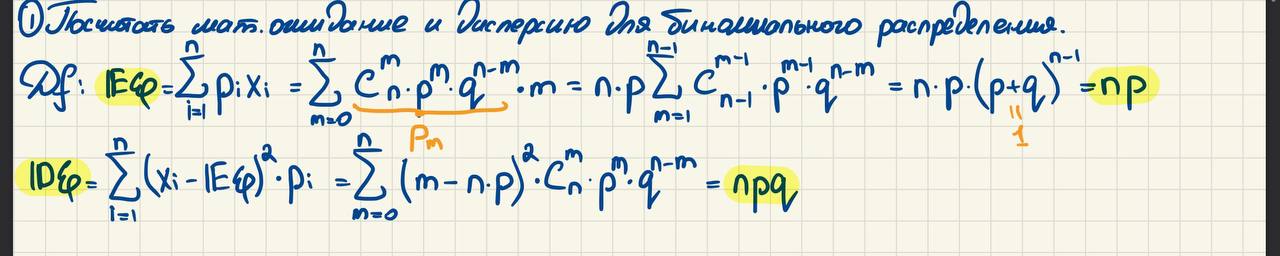 ① Посчитать мат. ожидание и дисперсию для биномиального распределения.
Df: 𝔼φ = ∑_{i=1}^{n} p_i x_i = ∑_{m=0}^{n} C_n^m · p^m · q^{n-m} · m = n · p ∑_{m=1}^{n-1} C_{n-1}^{m-1} · p^{m-1} · q^{n-m} = n · p · (p+q)^{n-1} = np
P_m
"
1
𝔻φ = ∑_{i=1}^{n} (x_i − 𝔼φ)² · p_i = ∑_{m=0}^{n} (m − n · p)² · C_n^m · p^m · q^{n-m} = npq